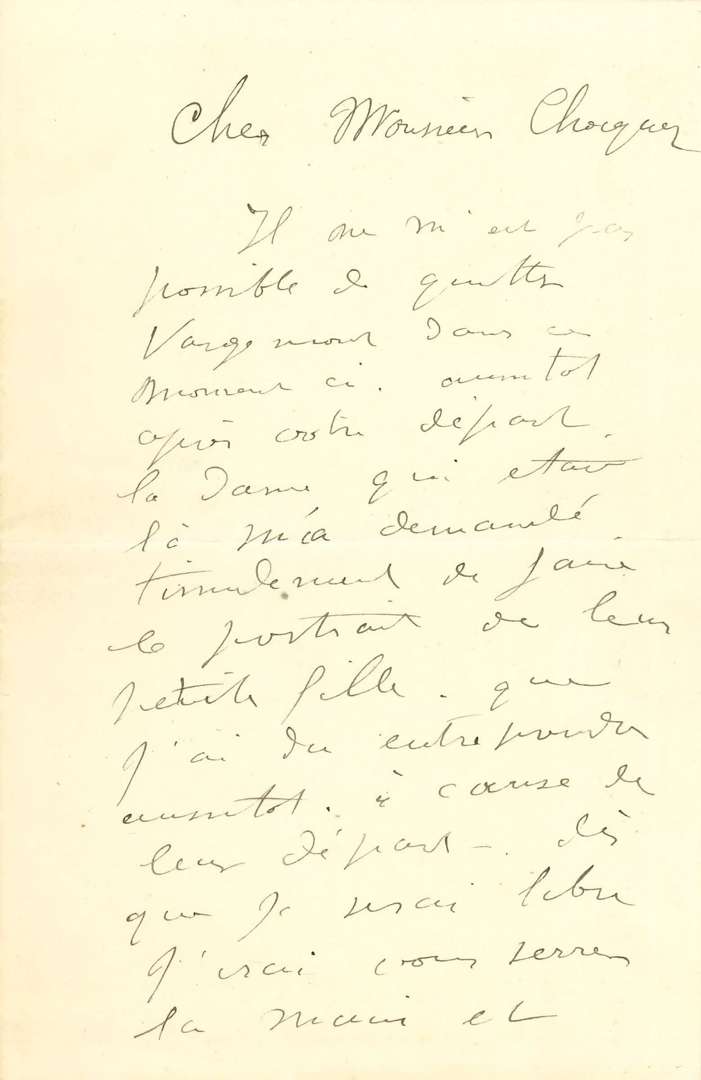 Cher Monsieur Chocquet
Il ne m'est pas
possible de quitter
Vargemont dans ce
moment ci. aussitot
après votre départ.
la dame qui etait
là m'a demandé
timidement de faire
le portrait de leur
petite fille. que
j'ai du entreprendre
aussitot. à cause de
leur départ -. dès
que je serai libre
j'irai vous serrer
la main et